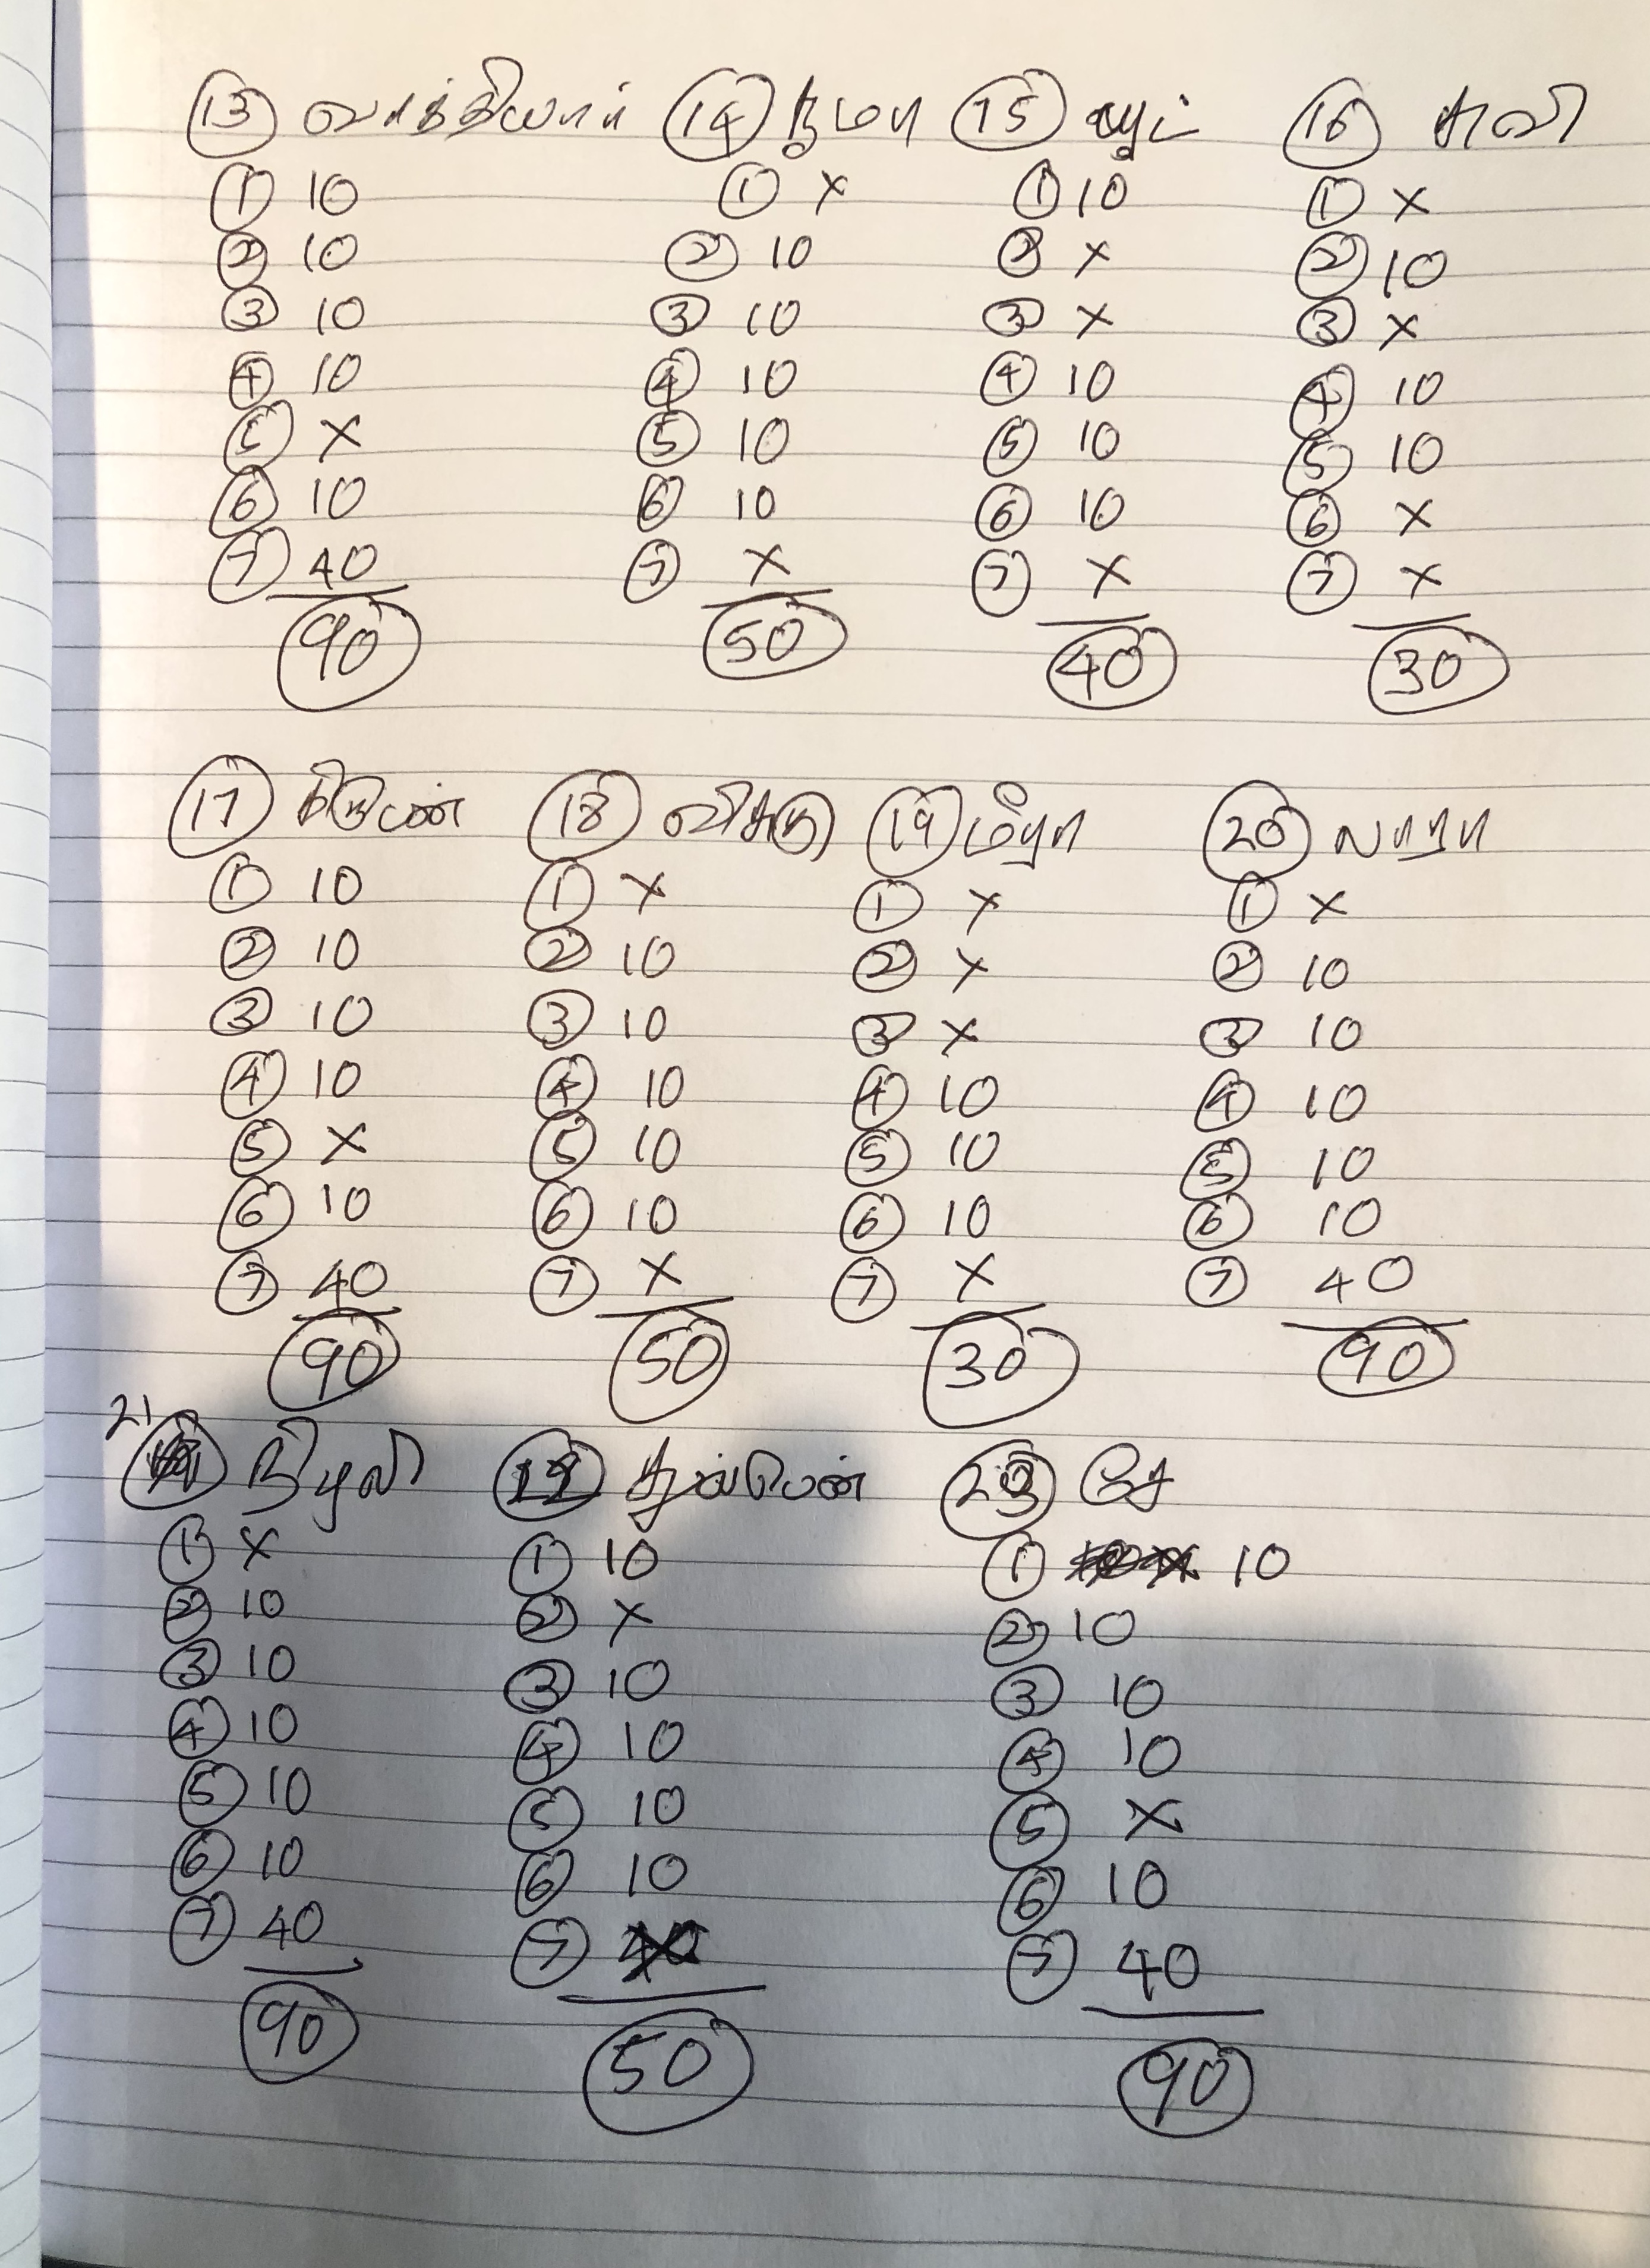 13 வாத்தியார் 14 குமார் 15 யூட் 16 கவி
1 10 1 x 1 10 1 x
2 10 2 10 2 x 2 10
3 10 3 10 3 x 3 x
4 10 4 10 4 10 4 10
5 x 5 10 5 10 5 10
6 10 6 10 6 10 6 x
7 40 7 x 7 x 7 x
90 50 40 30
17 18 19 மீரா 20 லாரா
1 10 1 x 1 x 1 x
2 10 2 10 2 x 2 10
3 10 3 10 3 x 3 10
4 10 4 10 4 10 4 10
5 x 5 10 5 10 5 10
6 10 6 10 6 10 6 10
7 40 7 x 7 x 7 40
90 50 30 90
21 நிழலி 23 சே
1 x 1 10 1 10
2 10 2 x 2 10
3 10 3 10 3 10
4 10 4 10 4 10
5 10 5 10 5 x
6 10 6 10 6 10
7 40 7 7 40
90 50 90